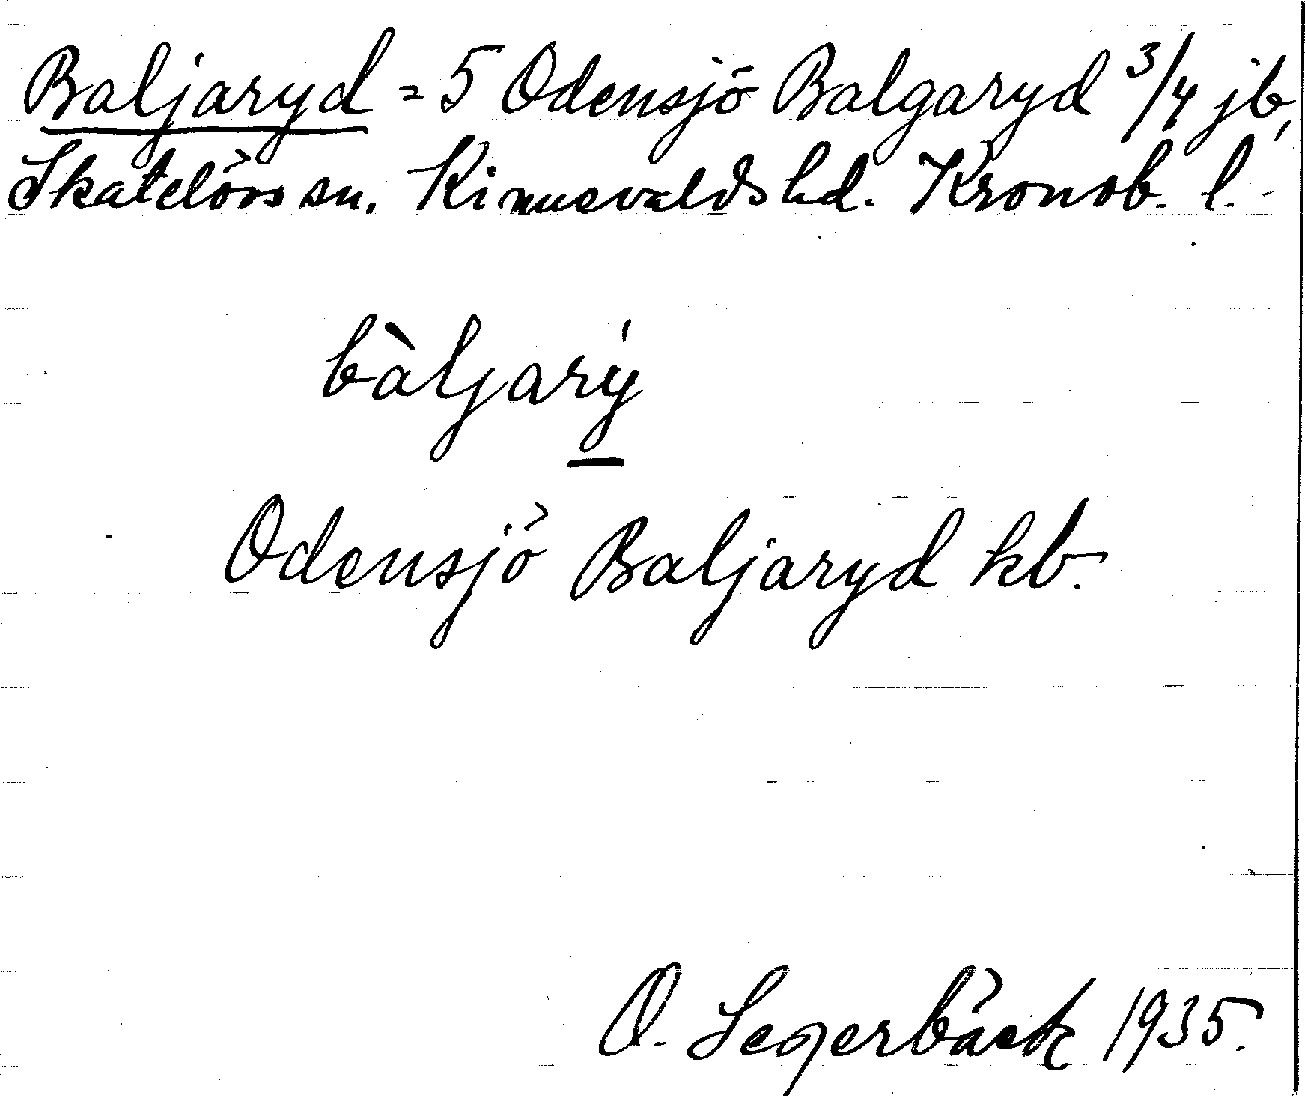 Baljaryd = 5 Odensjö Balgaryd 3/4 jb,
Skatelövs sn. Kinnevalds hd. Kronob. l.
bàljarý
Odensjö Baljaryd kb.
O. Segerbäck 1935.